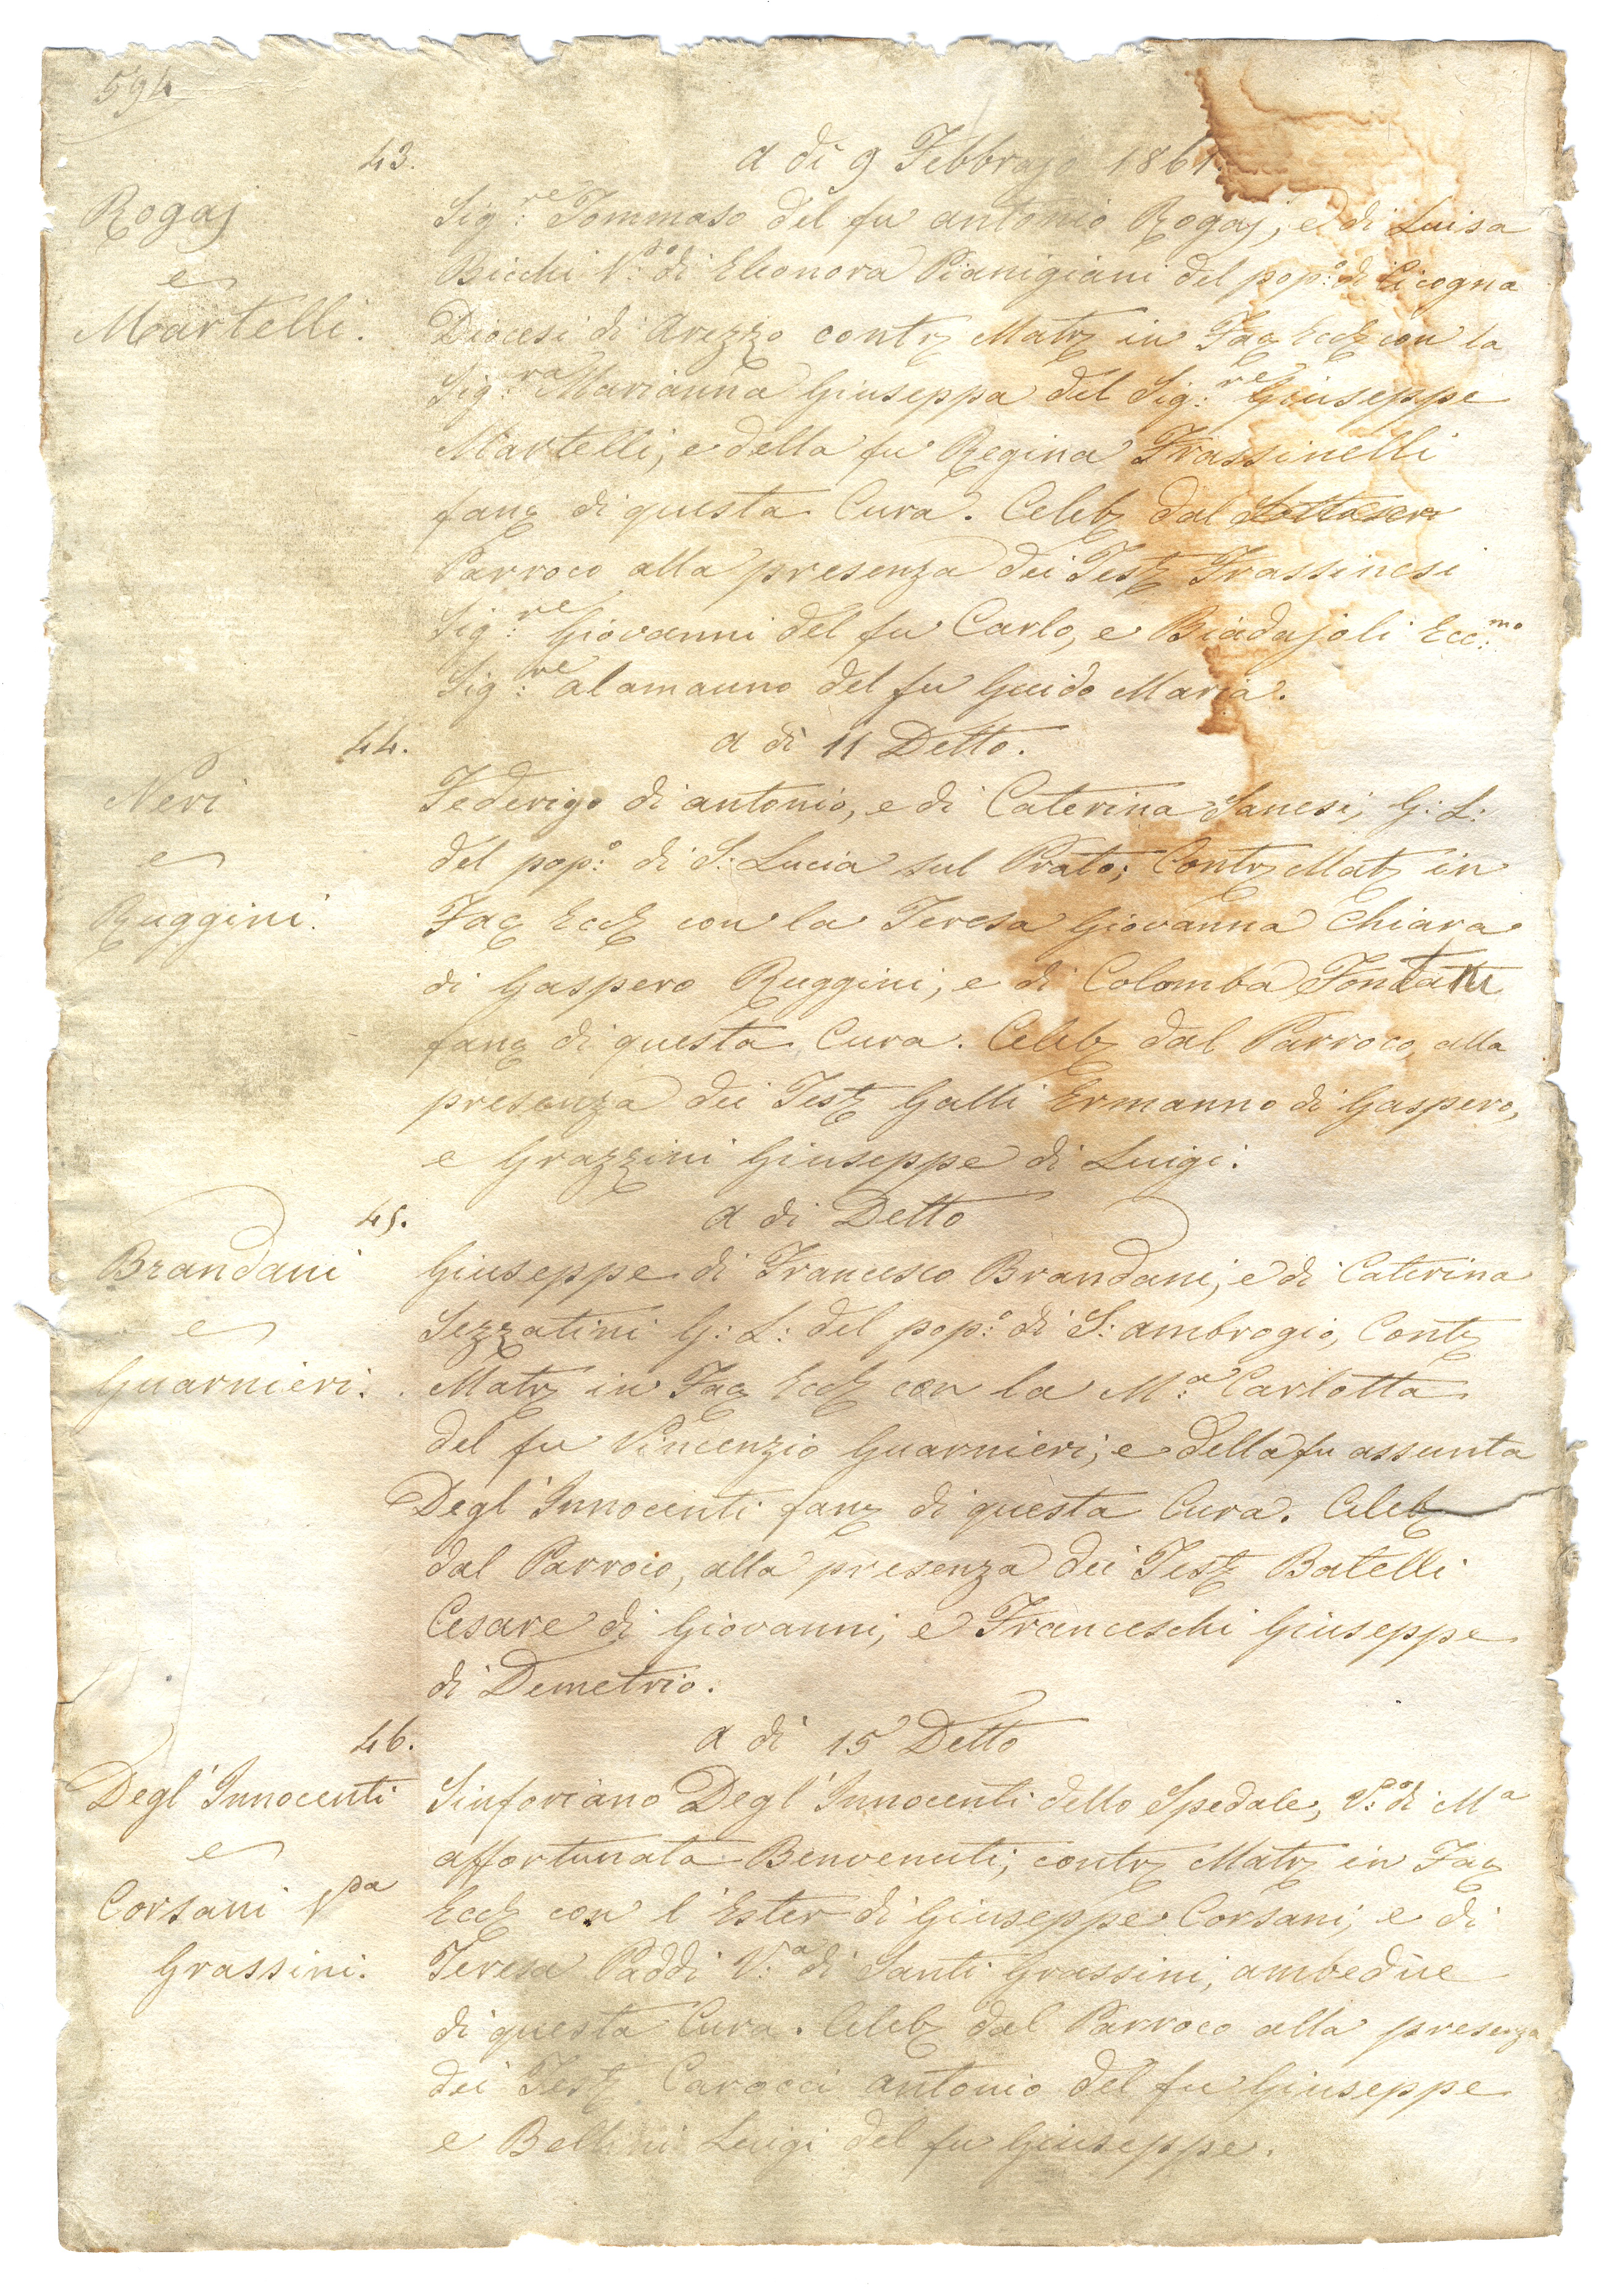 594
43. a di 9 Febbrajo 1861.
Rogaj Sig:re Tommaso del fu Antonio Rogaj, e di Luisa
e Bicchi V:o di Eleonora Pianigiani del pop:o di Cicogna
Martelli. Diocesi di Arezzo contr Matr in Fac Eccl con la
Sig:ra Marianna Giuseppa del Sig:re Giuseppe
Martelli, e della fu Regina Frassinelli
fanc di questa Cura. Celeb dal Sottoscr
Parroco alla presenza dei Test Frassinesi
Sig:re Giovanni del fu Carlo, e Biadajoli Ecc:mo
Sig:re Alamanno del fu Guido Maria.
44. a di 11 Detto.
Neri Federigo di Antonio, e di Caterina Sanesi, G: L:
e del pop:o di S: Lucia sul Prato; Contr Mat in
Ruggini. Fac Eccl con la Teresa Giovanna Chiara
di Gaspero Ruggini, e di Colomba
fanc di questa Cura. Celeb dal Parroco, alla
presenza dei Test Galli Ermanno di Gaspero,
e Grazzini Giuseppe di Luigi.
45. a di Detto
Brandani Giuseppe di Francesco Brandani, e di Caterina
e Sezzatini G: L: del pop:o di S: Ambrogio, Cont
Guarnieri. Matr in Fac Eccl con la M:a Carlotta
del fu Vincenzio Guarnieri, e della fu Assunta
Degl' Innocenti fanc di questa Cura. Celeb
dal Parroco, alla presenza dei Test Batelli
Cesare di Giovanni, e Franceschi Giuseppe
di Demetrio.
46. a di 15 Detto
Degl' Innocenti Sinforiano Degl' Innocenti dello Spedale, V:o di M:a
e Affortunata Benvenuti, contr Matr in Fac
Corsani V:da Eccl con l' Ester di Giuseppe Corsani, e di
Grassini. Teresa Paddi V:a di Santi Grassini, ambedue
di questa Cura. Celeb dal Parroco alla presenza
dei Test Carocci Antonio del fu Giuseppe
e Bellini Luigi del fu Giuseppe.